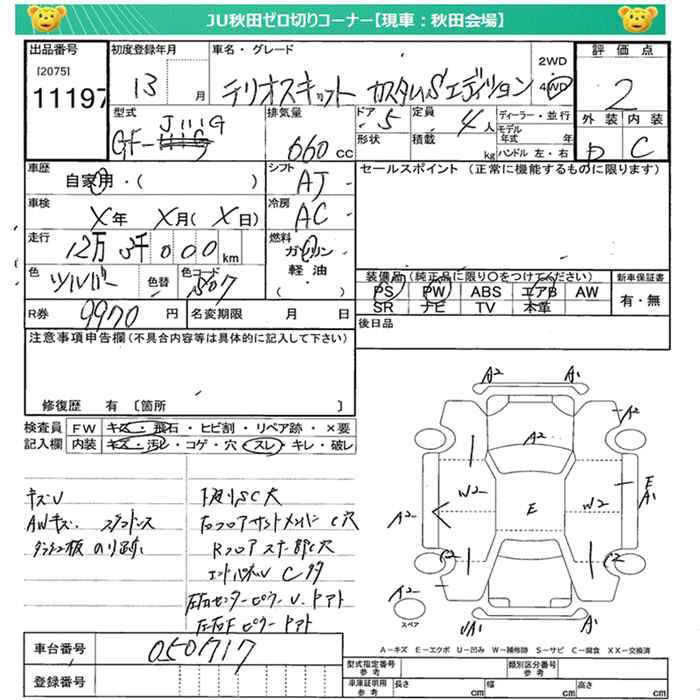 JU秋田ゼロ切りコーナー【現車：秋田会場】
出品番号 初度登録年月 車名・グレード 評価点
[2075] 11197
13 月 テリオスキット カスタムSエディション 2WD 4WD 2
型式 J111G GF- 排気量 660 cc
ドア 5 定員 4人 ディーラー・並行 外装 内装
形状 積載 kg モデル年式 年 ハンドル 左・右 D C
車歴 自家用・( ) シフト AT
セールスポイント (正常に機能するものに限ります)
車検 X年 X月(X日) 冷房 AC
走行 12万 3千 000 km 燃料 ガソリン 軽油 ( )
色 シルバー 色替 色コード S07
装備品 (純正品に限り〇をつけてください) 新車保証書
PS PW ABS エアB AW 有・無
SR ナビ TV 本革
R券 9970 円 名変期限 月 日
後日品
注意事項申告欄(不具合内容等は具体的に記入して下さい)
修復歴 有 〔箇所 〕
検査員 FW キズ・飛石・ヒビ割・リペア跡・×要
記入欄 内装 キズ・汚レ・コゲ・穴・スレ・キレ・破レ
A2 A1
A2 A2
キズU 下廻りSC穴
W2 E W2 E A1
AWキズ A2
ダッシュ板 のり跡
Rフロア
C2 C2
A2
スペア UA1 A1
A－キズ E－エクボ U－凹み W－補修跡 S－サビ C－腐食 XX－交換済
車台番号 050717
登録番号
型式指定番号 参考 類別区分番号 参考
車庫証明用 参考 長さ cm 幅 cm 高さ cm